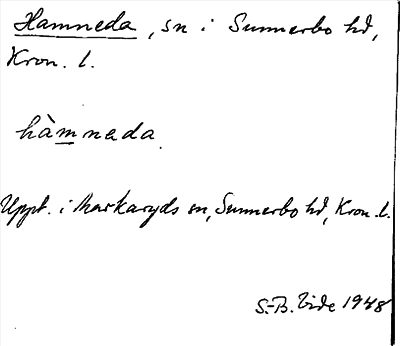 Hamneda, sn i Sunnerbo hd,
Kron. l.
hàmneda.
Uppt. i Markaryds sn, Sunnerbo hd, Kron. l.
S.-B. Vide 1948